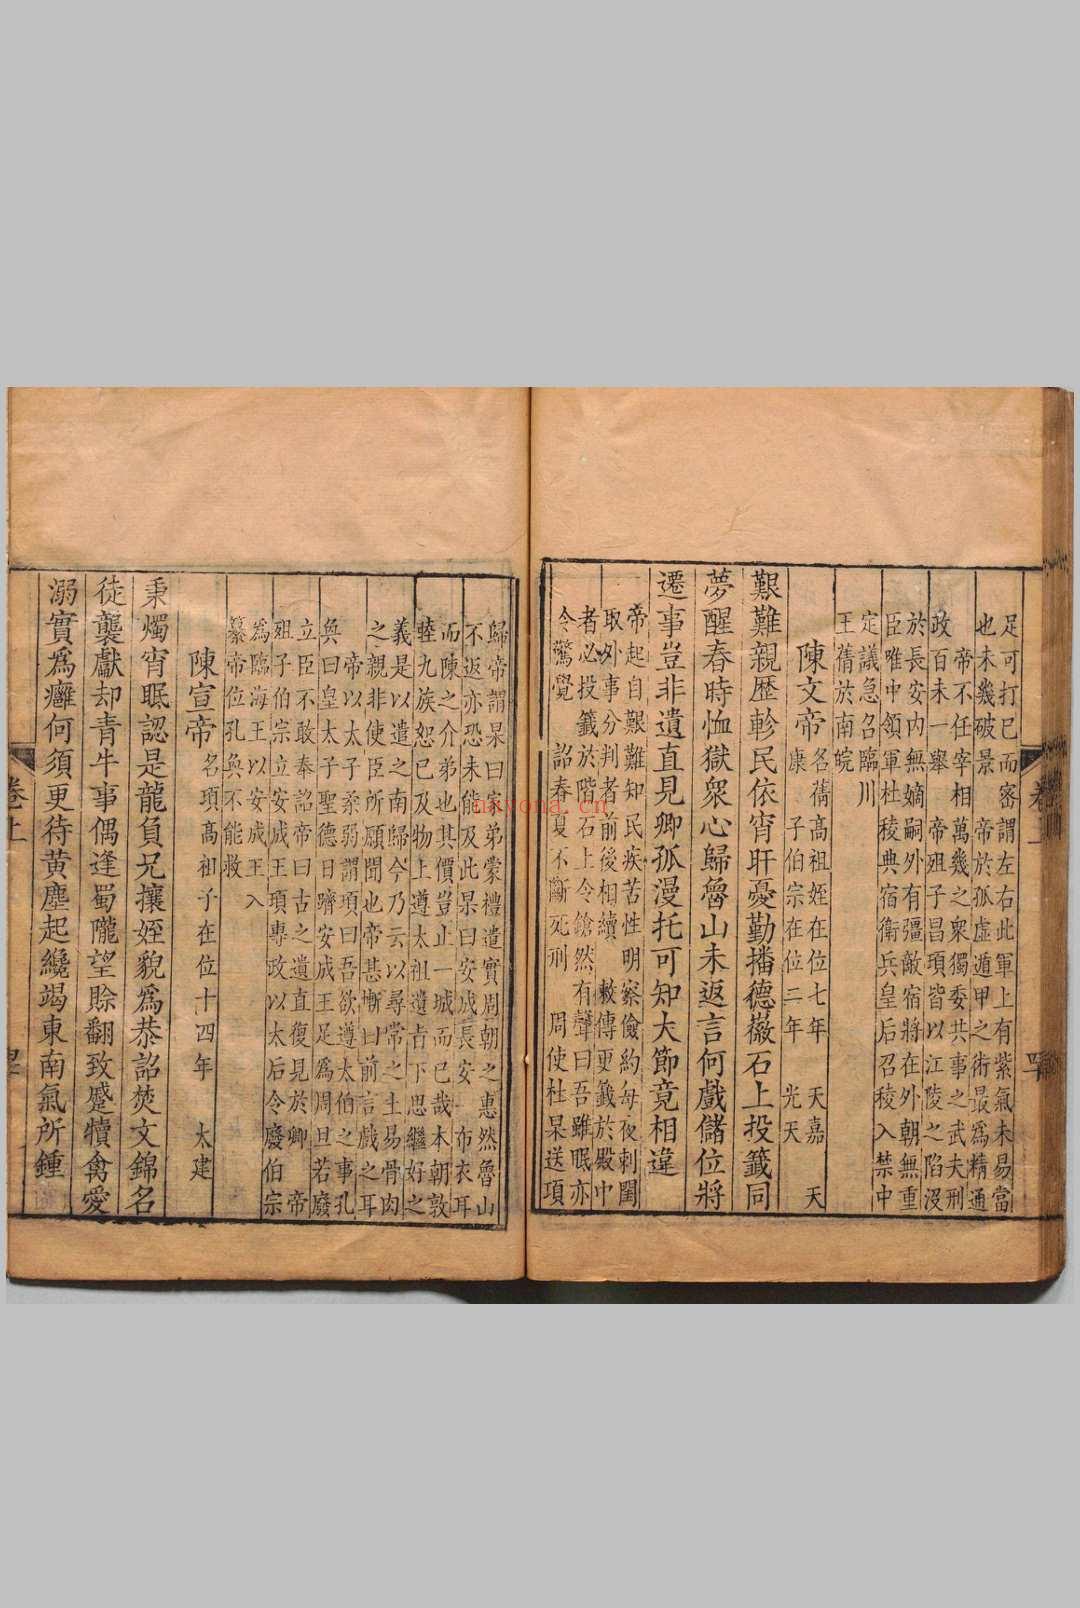 足可打巳而密謂左右此軍上有紫氣未易當
也未幾破景 帝於孤虛遁甲之術最爲精通
帝不任宰相萬幾之衆獨委共事之武夫刑
政百未一舉 帝殂子昌頊皆以江陵之陷沒
於長安内無嫡嗣外有彊敵宿將在外朝無重
臣唯中領軍杜稜典宿衛兵皇后召稜入禁中
定議急召臨川
王蒨於南皖
陳文帝
名蒨高祖姪在位七年 天嘉 天
康 子伯宗在位二年 光天
艱難親歷軫民依宵旰憂勤播德徽石上投籤同
夢醒春時恤獄衆心歸魯山未返言何戲儲位將
遷事豈非遺直見卿孤漫托可知大節竟相違
帝起自艱難知民疾苦性明察儉約每夜刺閨
取外事分判者前後相續 敕傳更籤於殿中
者必投籤於階石上令鎗然有聲曰吾雖眠亦
令驚覺 詔春夏不斷死刑 周使杜杲送頊
歸帝謂杲曰家弟蒙禮遣實周朝之惠然魯山
不返亦恐未能及此杲曰安成長安一布衣耳
而陳之介弟也其價豈止一城而已哉本朝敦
睦九族恕已及物上遵太祖遺吉下思繼好之
義是以遣之南歸今乃云以尋常之土易骨肉
之親非使臣所願聞也帝甚慚曰前言戲之耳
帝以太子柔弱謂頊曰吾欲遵太伯之事孔
奐曰皇太子聖德日躋安成王足爲周旦若廢
立臣不敢奉詔帝曰古之遺直復見於卿 帝
殂子伯宗立安成王頊專政以太后令廢伯宗
爲臨海王以安成王入
纂帝位孔奐不能救
陳宣帝
名頊高祖子在位十四年 太建
秉燭宵眠認是龍負兄攘姪貌爲恭詔焚文錦名
徒襲獻却青牛事偶逢蜀隴望賒翻致蹙犢禽愛
溺實爲癰何須更待黄塵起纔竭東南氣所鍾
卷上
nayona.cn